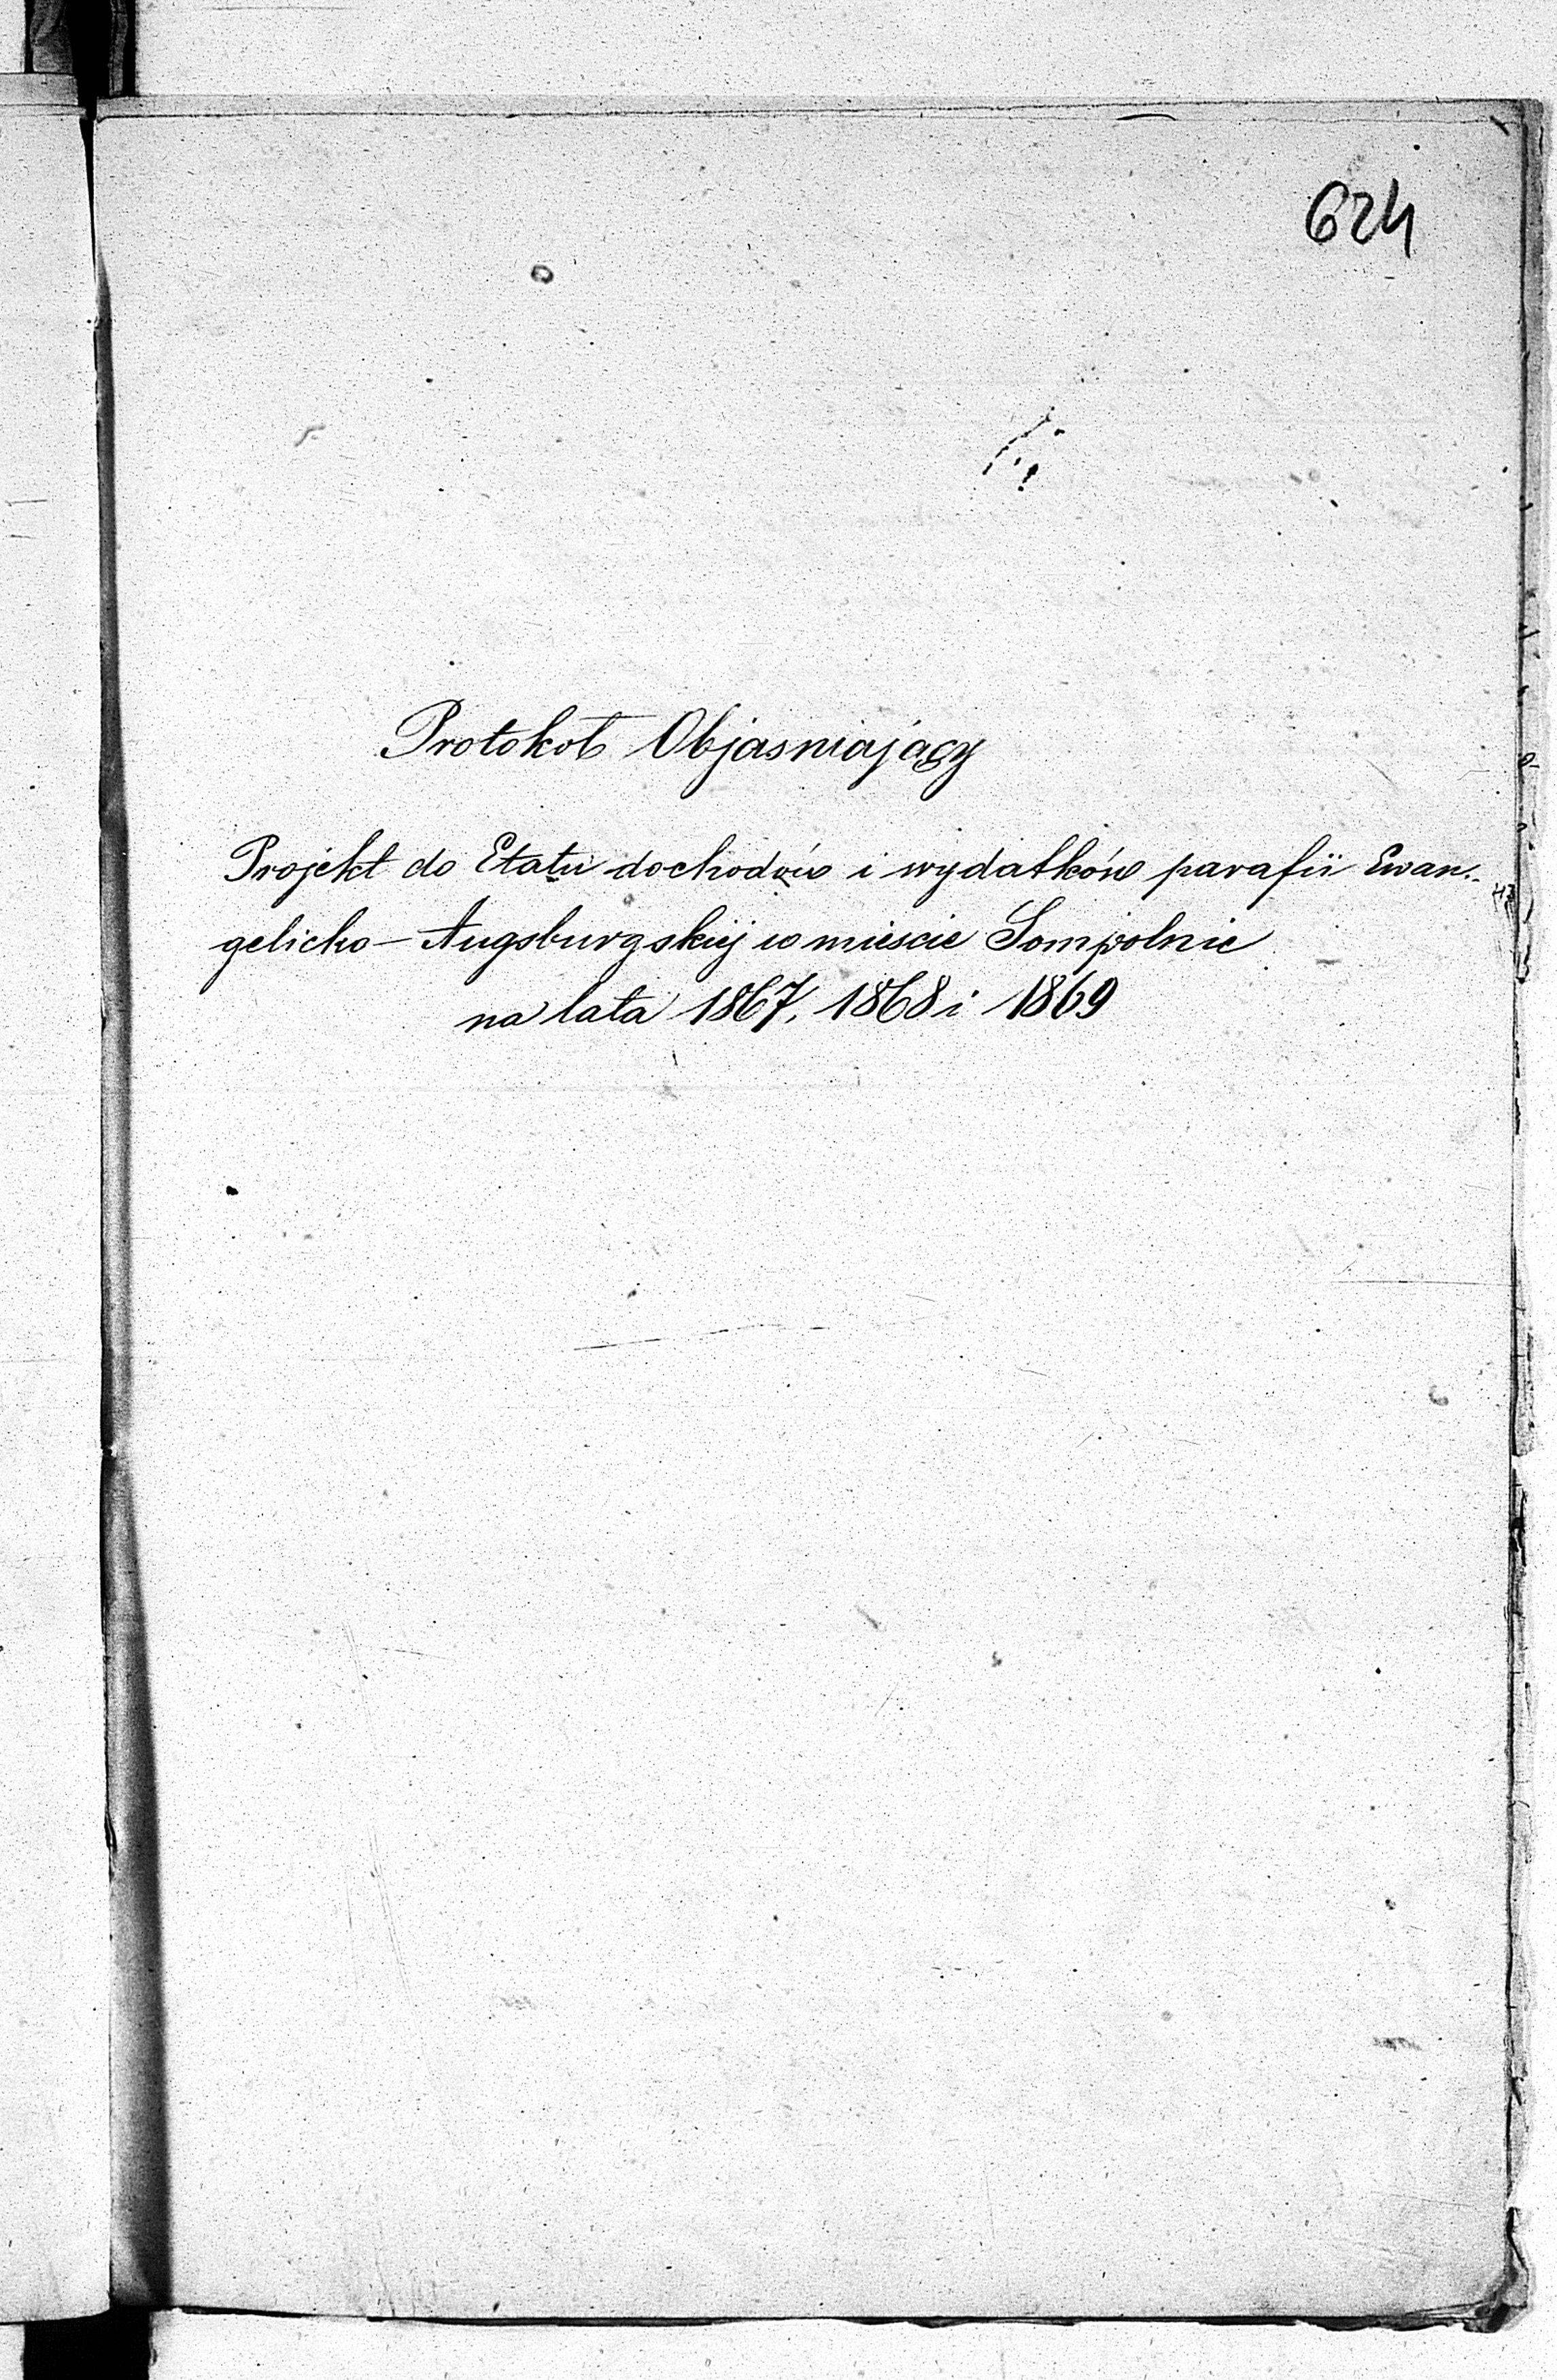 624
Protokoł Objasniający
Projekt do Etatu dochodów i wydatków parafii Ewan-
gelicko-Augsburgskiej w mieście Sompolnie
na lata 1867, 1868 i 1869